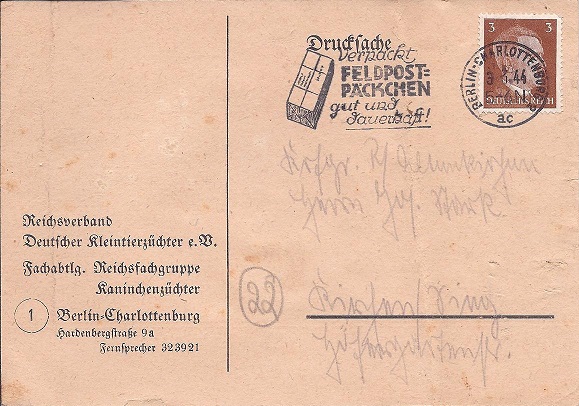 Drucksache
Verpackt
FELDPOST=
PÄCKCHEN
gut und
dauerhaft!
3 3
BERLIN-CHARLOTTENBURG
44
ac
Herrn
Reichsverband
Deutscher Kleintierzüchter e.V.
Fachabtlg. Reichsfachgruppe
Kaninchenzüchter
1 Berlin-Charlottenburg
Hardenbergstraße 9a
Fernsprecher 323921
22
Kirchen/Sieg